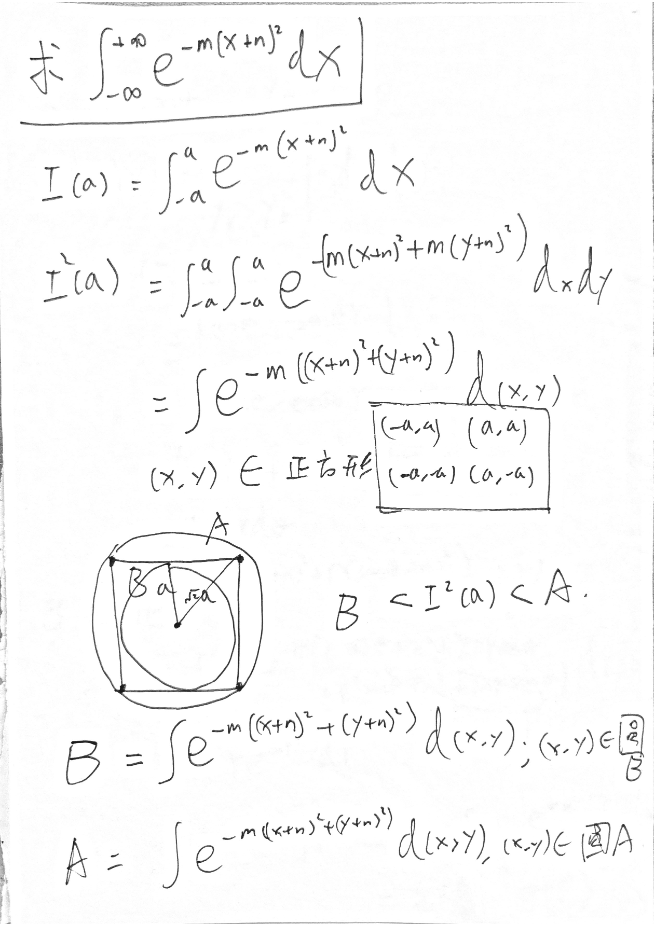 求 ∫_{-∞}^{+∞} e^{-m(x+n)²} dx
I(a) = ∫_{-a}^{a} e^{-m(x+n)²} dx
I²(a) = ∫_{-a}^{a} ∫_{-a}^{a} e^{-(m(x+n)²+m(y+n)²)} dxdy
= ∫ e^{-m((x+n)²+(y+n)²)} d(x,y)
(-a,a) (a,a)
(x,y) ∈ 正方形 (-a,-a) (a,-a)
A
B a √2a
B < I²(a) < A.
B = ∫ e^{-m((x+n)²+(y+n)²)} d(x,y); (x,y) ∈ 圆B
A = ∫ e^{-m((x+n)²+(y+n)²)} d(x,y), (x,y) ∈ 圆A